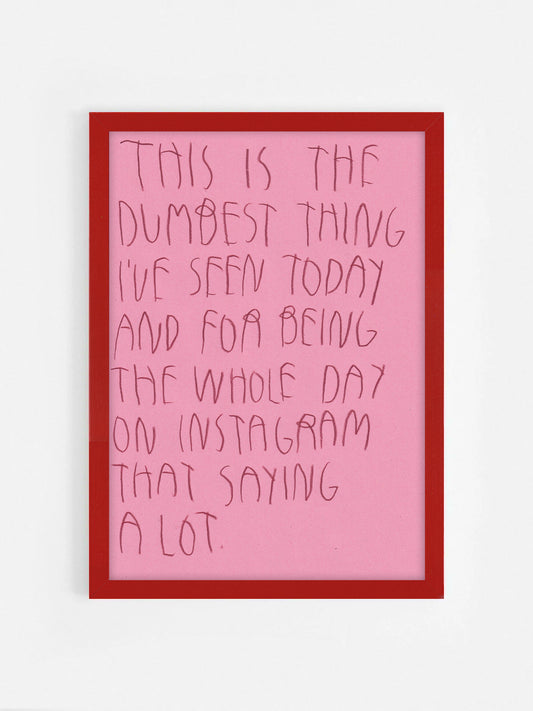 THIS IS THE
DUMBEST THING
I'VE SEEN TODAY
AND FOR BEING
THE WHOLE DAY
ON INSTAGRAM
THAT SAYING
A LOT.